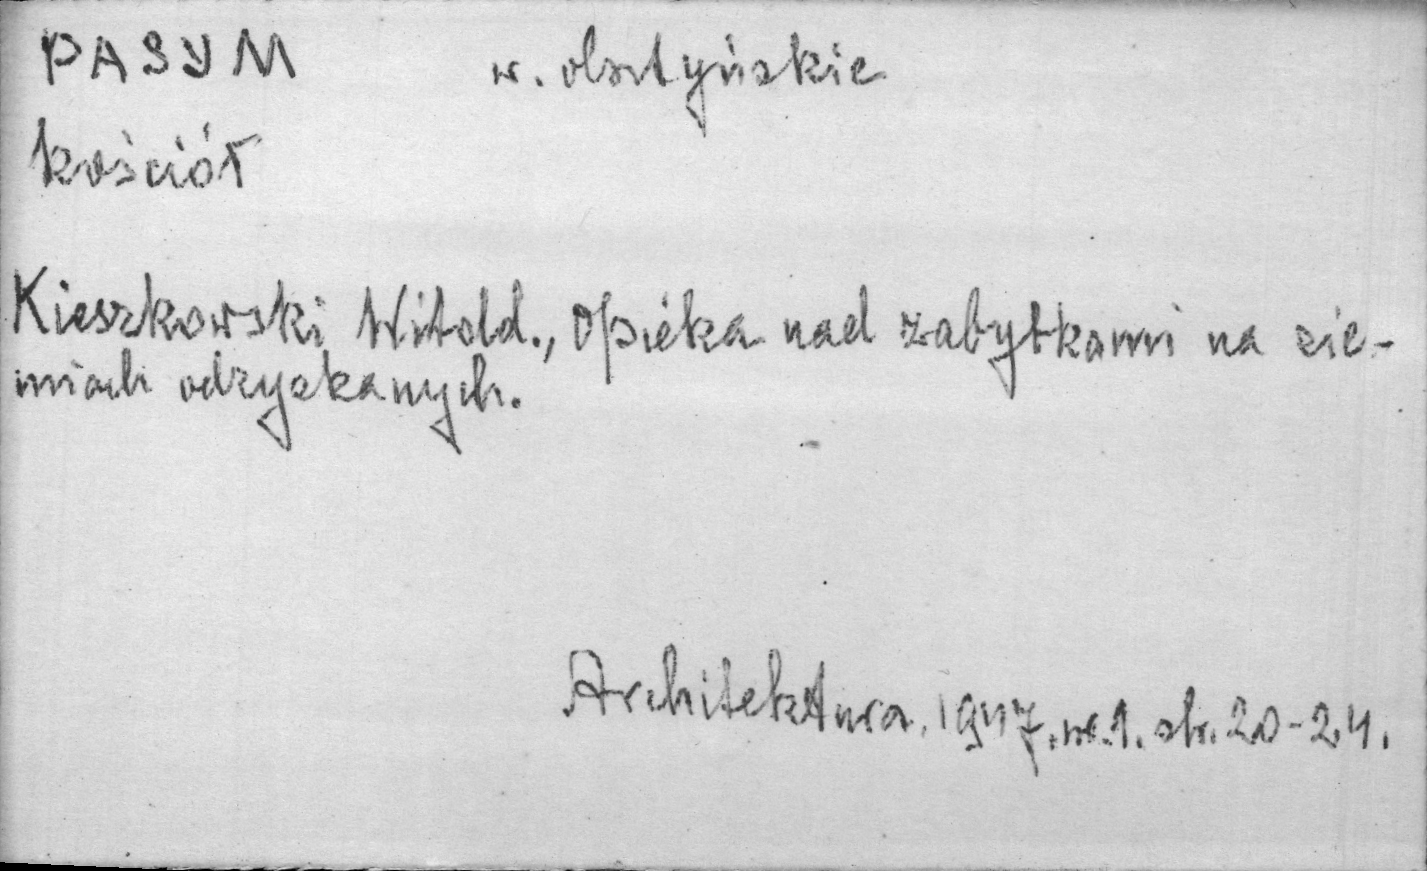 PASYM w. olsztyńskie
kościół
Kieszkowski Witold., Opieka nad zabytkami na zie-
miach odzyskanych.
Architektura. 1947. nr. 1. str. 20-24.